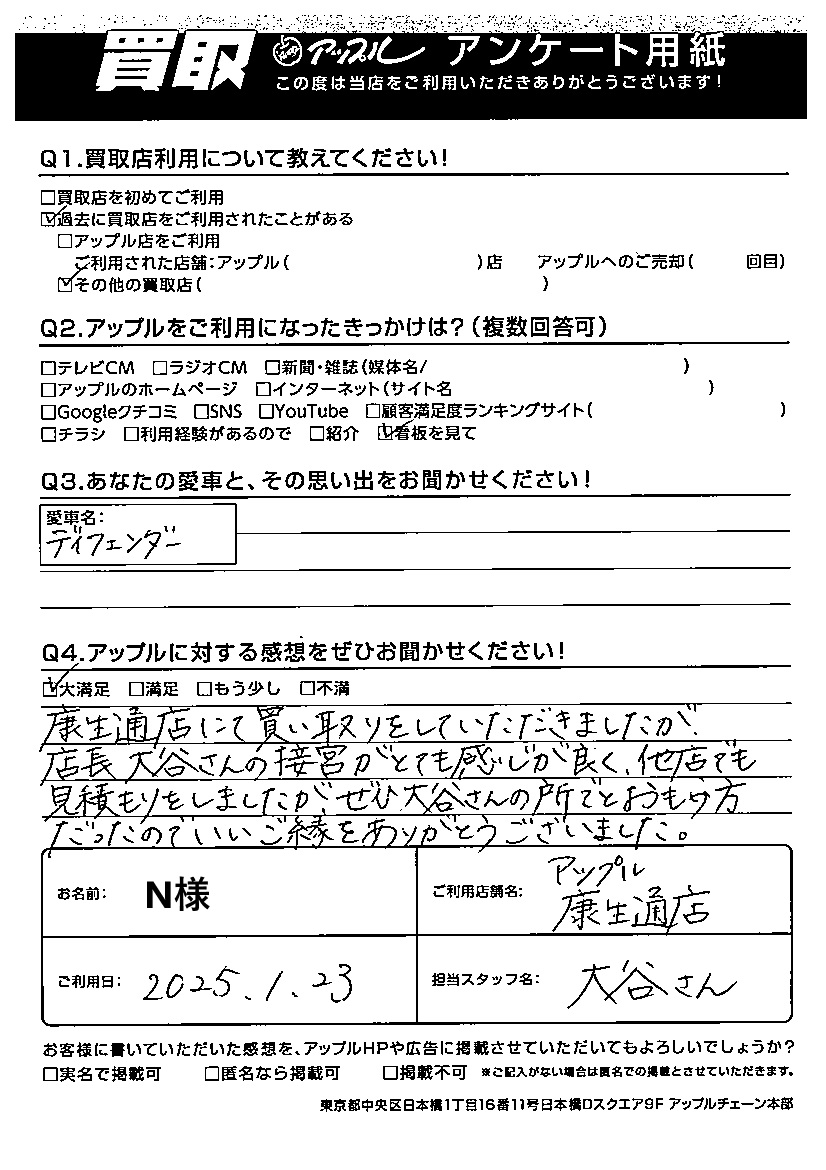 買取 アップル アンケート用紙
この度は当店をご利用いただきありがとうございます!
Q1.買取店利用について教えてください!
□買取店を初めてご利用
☑過去に買取店をご利用されたことがある
□アップル店をご利用
ご利用された店舗:アップル( )店 アップルへのご売却( 回目)
☑その他の買取店( )
Q2.アップルをご利用になったきっかけは?(複数回答可)
□テレビCM □ラジオCM □新聞・雑誌(媒体名/ )
□アップルのホームページ □インターネット(サイト名 )
□Googleクチコミ □SNS □YouTube □顧客満足度ランキングサイト( )
□チラシ □利用経験があるので □紹介 ☑看板を見て
Q3.あなたの愛車と、その思い出をお聞かせください!
愛車名:
ディフェンダー
Q4.アップルに対する感想をぜひお聞かせください!
☑大満足 □満足 □もう少し □不満
康生通店にて買い取りをしていただきましたが、
店長 大谷さんの接客がとても感じが良く、他店でも
見積もりをしましたがぜひ大谷さんの所でとおもう方
だったのでいいご縁をありがとうございました。
お名前: N様
ご利用店舗名: アップル
康生通店
ご利用日: 2025.1.23
担当スタッフ名: 大谷さん
お客様に書いていただいた感想を、アップルHPや広告に掲載させていただいてもよろしいでしょうか?
□実名で掲載可 □匿名なら掲載可 □掲載不可 ※ご記入がない場合は匿名での掲載とさせていただきます。
東京都中央区日本橋1丁目16番11号日本橋Dスクエア9F アップルチェーン本部